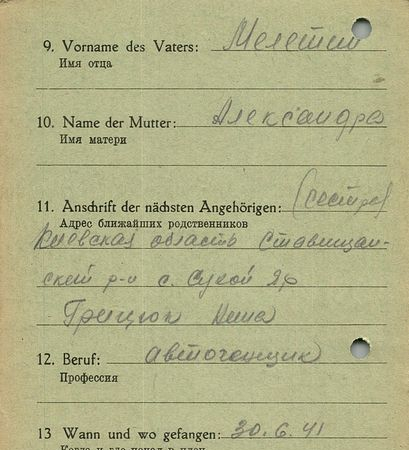 9. Vorname des Vaters: Мелетий
Имя отца
10. Name der Mutter: Александра
Имя матери
11. Anschrift der nächsten Angehörigen: (сестра)
Адрес ближайших родственников
Киевская область Ставищан-
ский р-н с. Сухой Яр
Грицюк Нина
12. Beruf: автогенщик
Профессия
13 Wann und wo gefangen: 30.6.41
Когда и где попал в плен